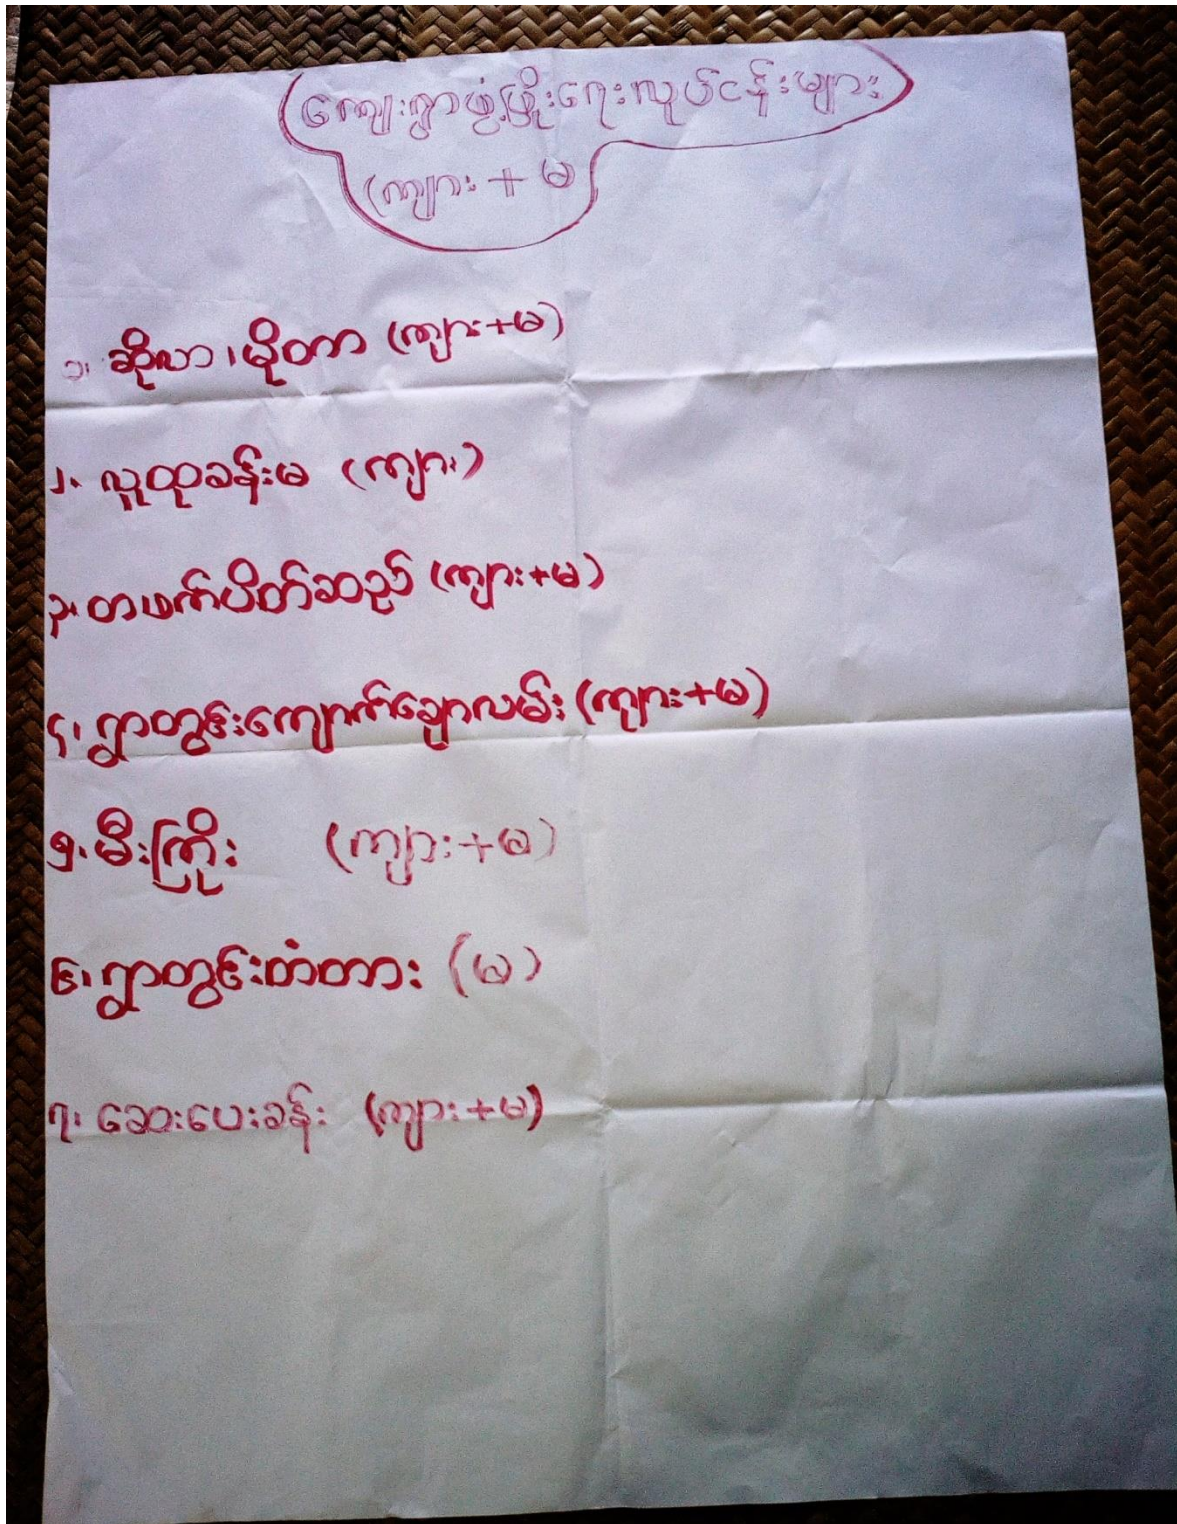 ကျေးရွာဖွံ့ဖြိုးရေးလုပ်ငန်းများ
(ကျား + မ)
၁၊ ဆိုလာ ၊ မိုတာ (ကျား+မ)
၂၊ လူထုခန်းမ (ကျား)
၃၊ တဖက်ပိတ်ဆည် (ကျား+မ)
၄၊ ရွာတွင်းကျောက်ချောလမ်း (ကျား+မ)
၅၊ မီးကြိုး (ကျား+မ)
၆၊ ရွာတွင်းတံတား (မ)
၇၊ ဆေးပေးခန်း (ကျား+မ)